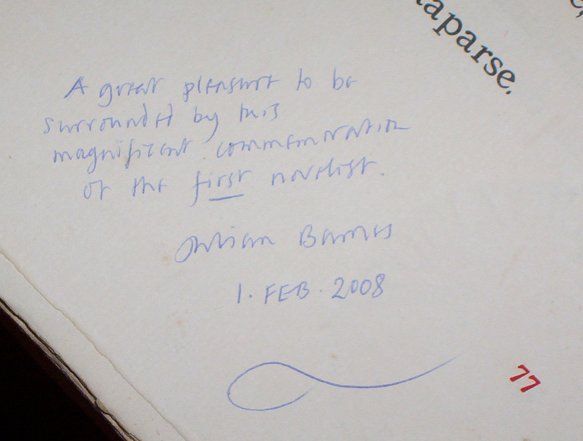 taparse.
A great pleasure to be
surrounded by this
magnificent commemoration
of the first novelist.
Julian Barnes
1. FEB. 2008
77